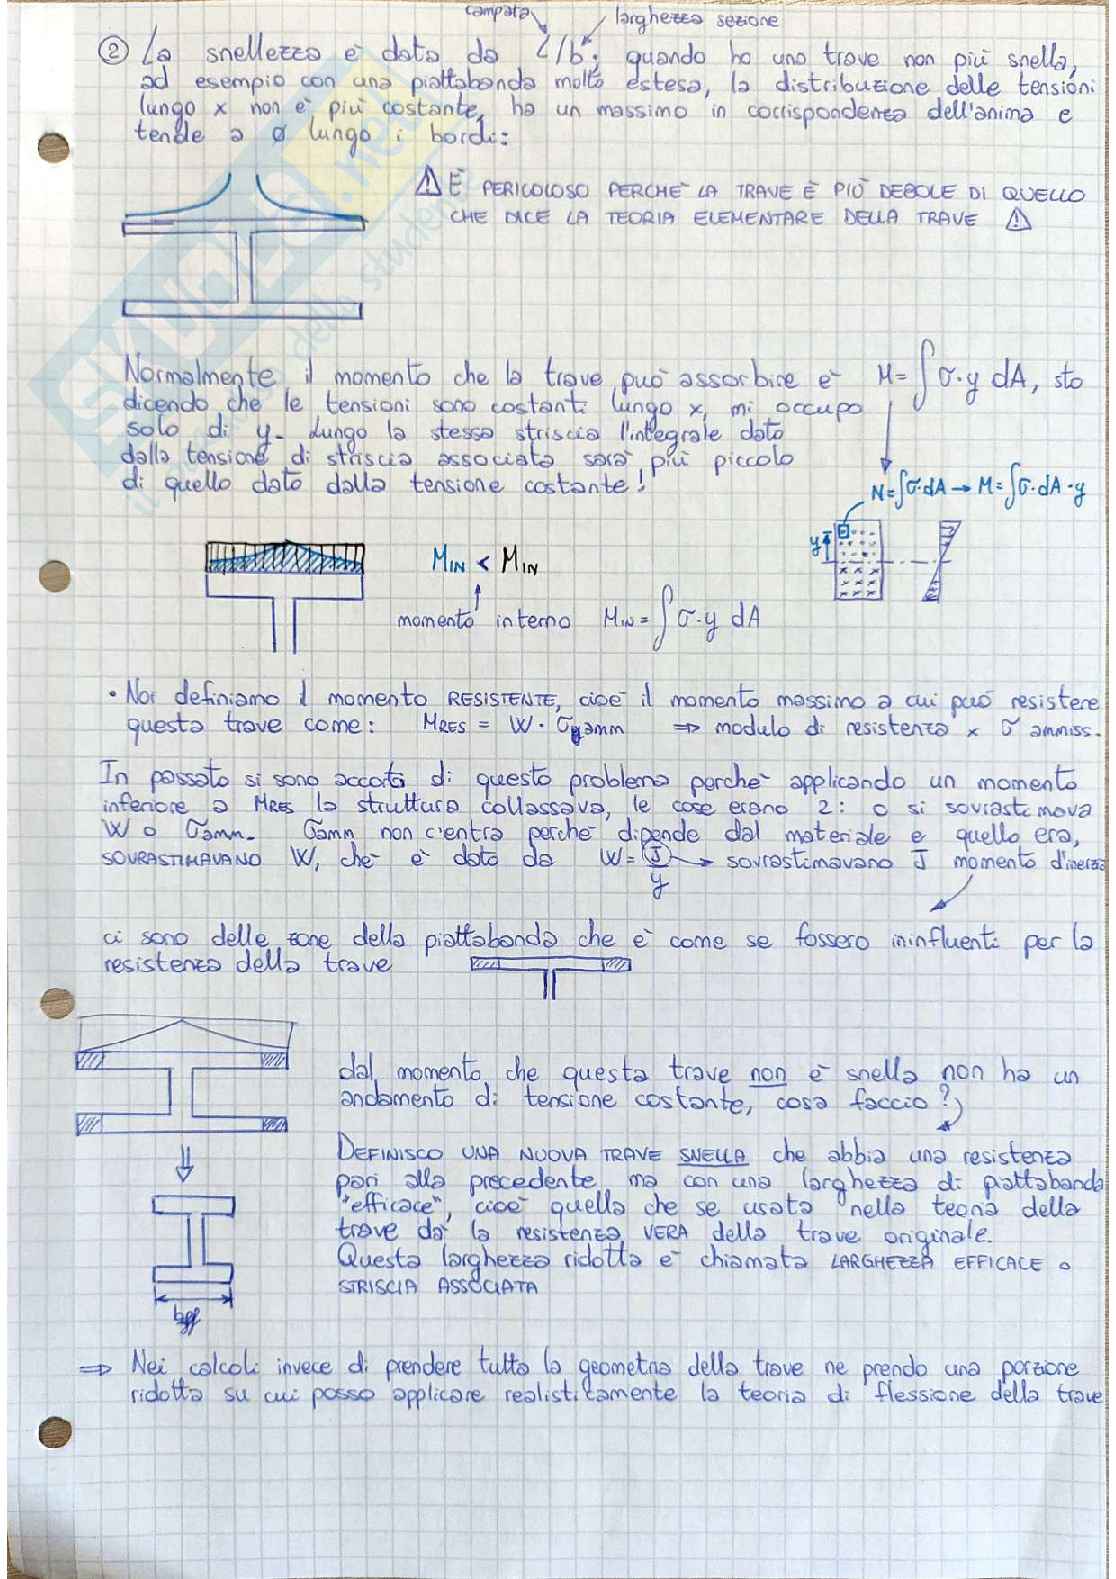 campata larghezza sezione
② La snellezza è data da L/b; quando ho una trave non più snella,
ad esempio con una piattabanda molto estesa, la distribuzione delle tensioni
lungo x non è più costante, ha un massimo in corrispondenza dell'anima e
tende a ø lungo i bordi:
⚠ È PERICOLOSO PERCHÈ LA TRAVE È PIÙ DEBOLE DI QUELLO
CHE DICE LA TEORIA ELEMENTARE DELLA TRAVE ⚠
Normalmente il momento che la trave può assorbire è M=∫σ·y dA, sto
dicendo che le tensioni sono costanti lungo x, mi occupo
solo di y. Lungo la stessa striscia l'integrale dato
dalla tensione di striscia associata sarà più piccolo
di quello dato dalla tensione costante!
N=∫σ·dA → M=∫σ·dA·y
y
M_IN < M_IN
momento interno M_IN=∫σ·y dA
• Noi definiamo il momento RESISTENTE, cioè il momento massimo a cui può resistere
questa trave come: M_RES = W · σ_amm ⇒ modulo di resistenza x σ ammiss.
In passato si sono accorti di questo problema perchè applicando un momento
inferiore a M_RES la struttura collassava, le cose erano 2: o si sovrastimava
W o σ_amm. σ_amm non c'entra perchè dipende dal materiale e quello era,
SOVRASTIMAVANO W, che è dato da W=J/y → sovrastimavano J momento d'inerzia
ci sono delle zone della piattabanda che è come se fossero ininfluenti per la
resistenza della trave
dal momento che questa trave non è snella non ha un
andamento di tensione costante, cosa faccio?
DEFINISCO UNA NUOVA TRAVE SNELLA che abbia una resistenza
pari alla precedente ma con una larghezza di piattabanda
"efficace", cioè quella che se usata nella teoria della
trave dà la resistenza VERA della trave originale.
Questa larghezza ridotta è chiamata LARGHEZZA EFFICACE o
STRISCIA ASSOCIATA
b_eff
⇒ Nei calcoli invece di prendere tutta la geometria della trave ne prendo una porzione
ridotta su cui posso applicare realisticamente la teoria di flessione della trave